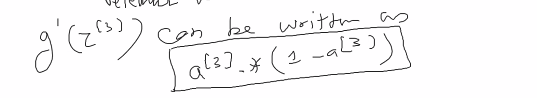 g'(z^[3]) can be written as
a^[3] .* (1 - a^[3])